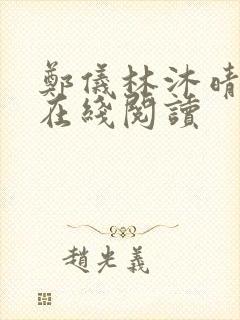 鄭儀林沐晴
在綫閱讀
趙光義